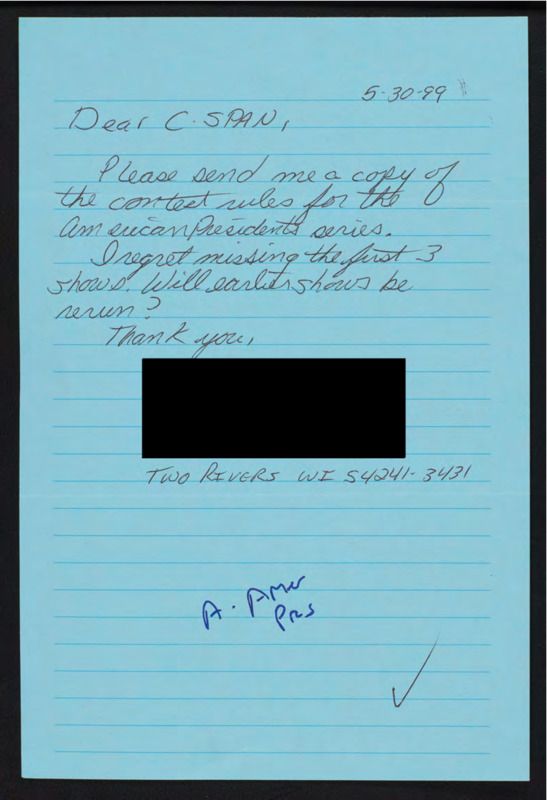 5-30-99
Dear C-SPAN,
Please send me a copy of
the contest rules for the
American Presidents series.
I regret missing the first 3
shows. Will earlier shows be
rerun?
Thank you,
TWO RIVERS WI 54241-3431
A. Amer
Pres